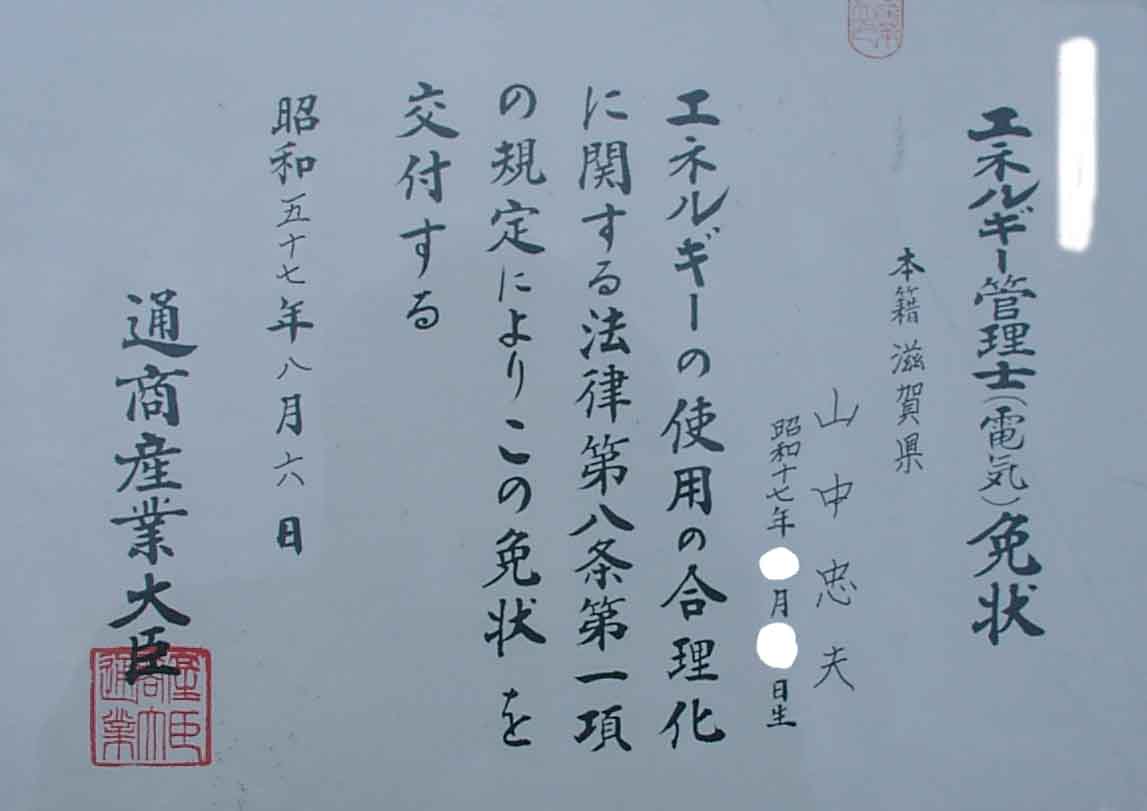 エネルギー管理士(電気)免状
本籍 滋賀県
山中忠夫
昭和十七年 月 日生
エネルギーの使用の合理化
に関する法律第八条第一項
の規定によりこの免状を
交付する
昭和五十七年八月六日
通商産業大臣